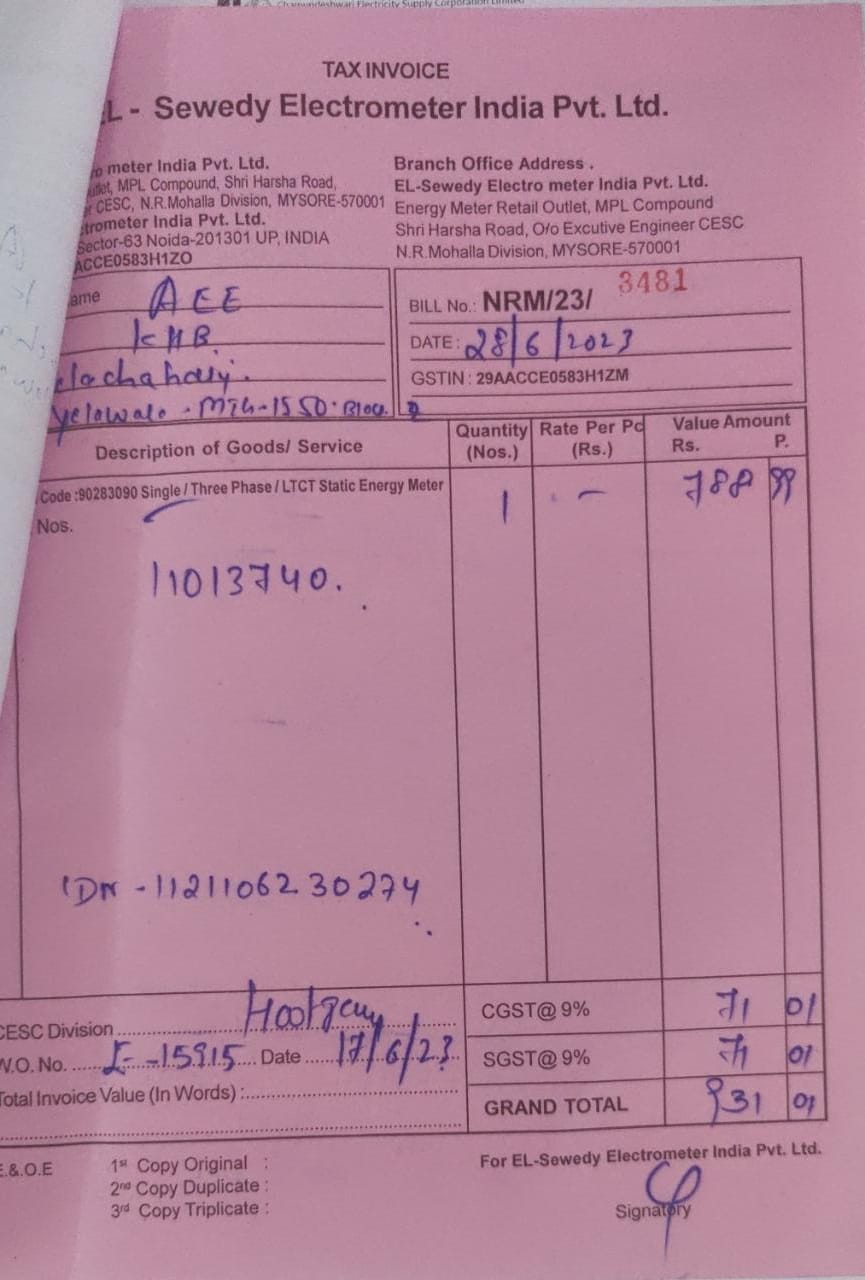 Chamundeshwari Electricity Supply Corporation Limited
TAX INVOICE
EL - Sewedy Electrometer India Pvt. Ltd.
meter India Pvt. Ltd.
MPL Compound, Shri Harsha Road,
CESC, N.R.Mohalla Division, MYSORE-570001
trometer India Pvt. Ltd.
Sector-63 Noida-201301 UP, INDIA
ACCE0583H1ZO
Branch Office Address .
EL-Sewedy Electro meter India Pvt. Ltd.
Energy Meter Retail Outlet, MPL Compound
Shri Harsha Road, O/o Excutive Engineer CESC
N.R.Mohalla Division, MYSORE-570001
ame AEE
KHB
Yelawala - MIG-1550. Block. 2
BILL No.: NRM/23/ 3481
DATE : 28/6/2023
GSTIN : 29AACCE0583H1ZM
Description of Goods/ Service
Quantity (Nos.)
Rate Per Pc (Rs.)
Value Amount
Rs. P.
Code :90283090 Single / Three Phase / LTCT Static Energy Meter
1 - 788 99
Nos.
11013740.
IDN - 11211062 30274
CESC Division
W.O. No. ....... -15915.... Date ..... 17/6/23
Total Invoice Value (In Words) :
CGST@ 9% 71 01
SGST@ 9% 71 01
GRAND TOTAL 931 01
E.&.O.E
1st Copy Original :
2nd Copy Duplicate :
3rd Copy Triplicate :
For EL-Sewedy Electrometer India Pvt. Ltd.
Signatory